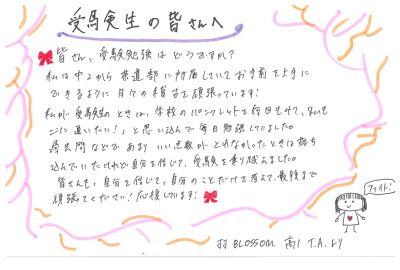 受験生の皆さんへ
皆さん、受験勉強はどうですか?
私は中2から茶道部に所属していてお手前を上手に
できるように日々の稽古を頑張っています!
私が受験生のときは、学校のパンフレットを何回もみて、「私も
ここに通いたい!」と思い込んで毎日勉強していました。
過去問などであまりいい点数がとれなかったときは落ち
込んでいたけれど自分を信じて、受験を乗り越えました。
皆さんも、自分を信じて、自分のことだけを考えて、最後まで
頑張ってください!応援しています!
ファイト!
BLOSSOM 高1 T.A.より